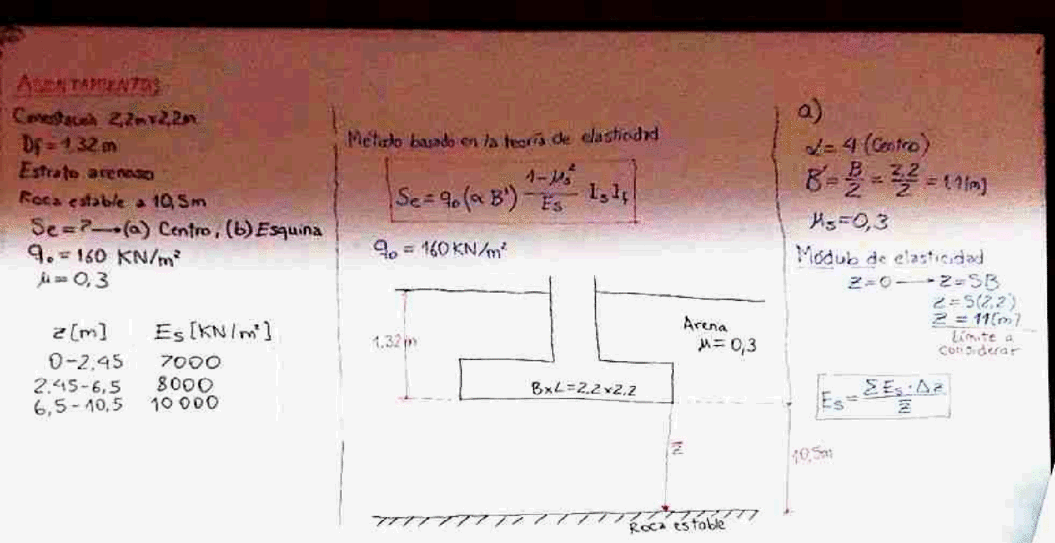 ASENTAMIENTOS
Cimentación 2,2m x 2,2m
Df = 1.32 m
Estrato arenoso
Roca estable a 10,5m
Se = ? → (a) Centro, (b) Esquina
q₀ = 160 KN/m²
μ = 0,3
z [m] Es [KN/m²]
0-2,45 7000
2.45-6,5 8000
6,5-10,5 10 000
Método basado en la teoría de elasticidad
Se = q₀ (α B') (1-μs²)/Es Is If
q₀ = 160 KN/m²
1.32m
Arena
μ = 0,3
BxL = 2.2 x 2.2
z̄
10,5m
Roca estable
a)
α = 4 (Centro)
B' = B/2 = 2,2/2 = 1,1 [m]
μs = 0,3
Módulo de elasticidad
z = 0 → z = 5B
z = 5(2,2)
z = 11 [m]
Límite a
considerar
Es = Σ Es · Δz / z̄